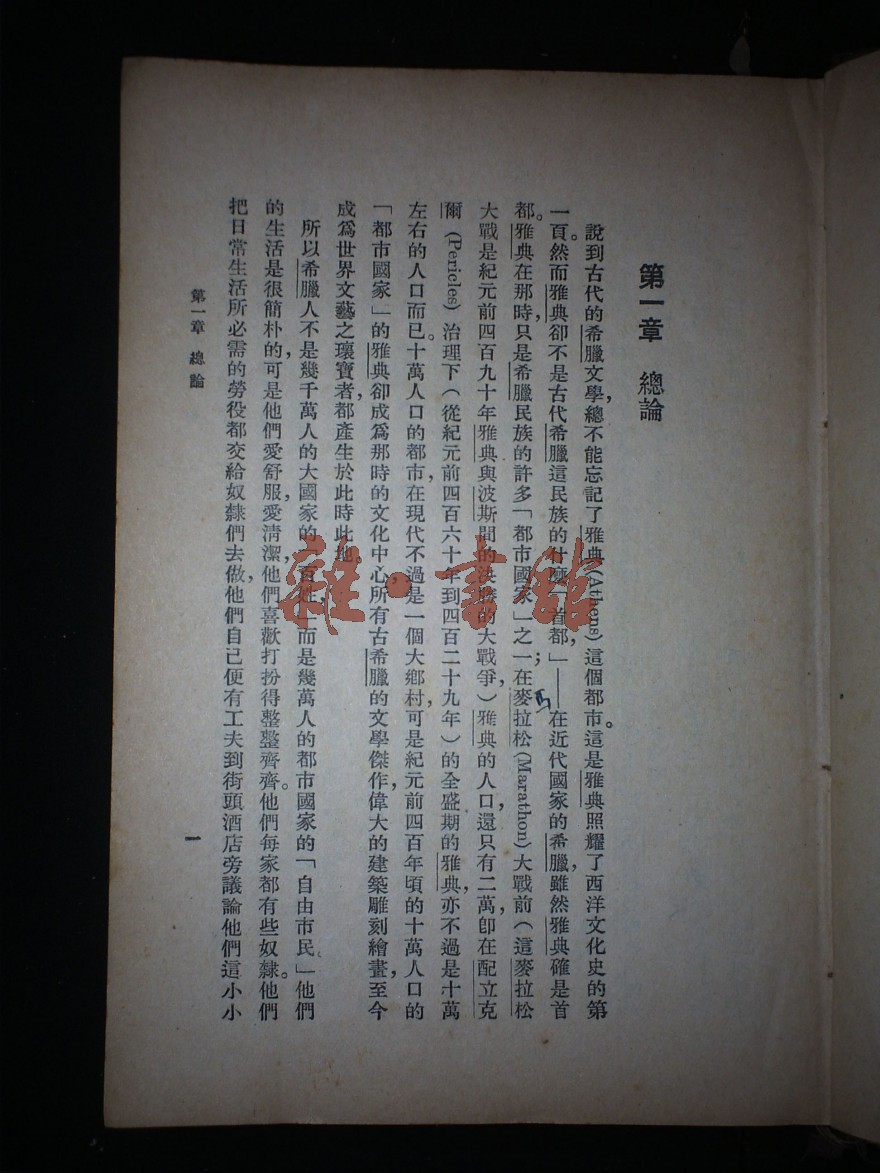 第一章　總論
說到古代的希臘文學,總不能忘記了雅典(Athens)這個都市。這是雅典照耀了西洋文化史的第
一頁。然而雅典卻不是古代希臘這民族的什麼「首都,」——在近代國家的希臘,雖然雅典確是首
都。雅典在那時,只是希臘民族的許多「都市國家」之一;在麥拉松(Marathon)大戰前(這麥拉松
大戰是紀元前四百九十年雅典與波斯間的決勝的大戰爭,)雅典的人口,還只有二萬,卽在配立克
爾(Pericles)治理下(從紀元前四百六十年到四百二十九年)的全盛期的雅典,亦不過是十萬
左右的人口而已。十萬人口的都市,在現代不過是一個大鄉村,可是紀元前四百年頃的十萬人口的
「都市國家」的雅典卻成爲那時的文化中心,所有古希臘的文學傑作,偉大的建築雕刻繪畫,至今
成爲世界文藝之瓌寶者,都產生於此時此地。
所以希臘人不是幾千萬人的大國家的「百姓,」而是幾萬人的都市國家的「自由市民。」他們
的生活是很簡朴的,可是他們愛舒服,愛清潔,他們喜歡打扮得整整齊齊。他們每家都有些奴隸。他們
把日常生活所必需的勞役都交給奴隸們去做,他們自已便有工夫到街頭酒店旁議論他們這小小
第一章　總論
一
雜·書館